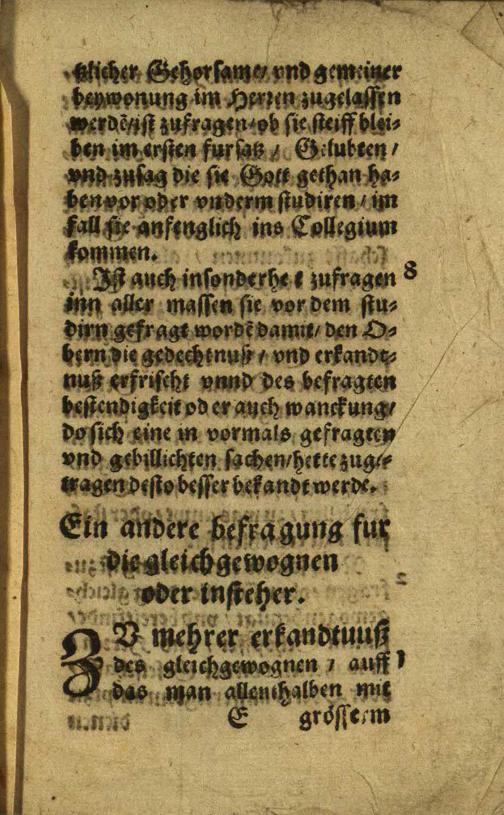 tzlicher Gehorsame/ vnd gemeiner
beywonung im Herren zugelassen
werdē/ist zufragen/ob sie steiff blei-
ben im ersten fursatz / Gelubten /
vnd zusag die sie Gott gethan ha-
ben vor oder vnderm studiren / im
fall sie anfenglich ins Collegium
kommen.
Ist auch insonderheit zufragen 8
inn aller massen sie vor dem stu-
dirn gefragt wordē damit/ den O-
bern die gedechtnuß / vnd erkandt-
nuß erfrischt vnnd des befragten
bestendigkeit oder auch wanckung/
do sich eine in vormals gefragten
vnd gebillichten sachen/hette zuge-
tragen desto besser bekandt werde.
Ein andere befragung fur
die gleichgewognen
oder insteher.
ZV mehrer erkandtnuß
des gleichgewognen / auff 1
das man allenthalben mit
E grösserm